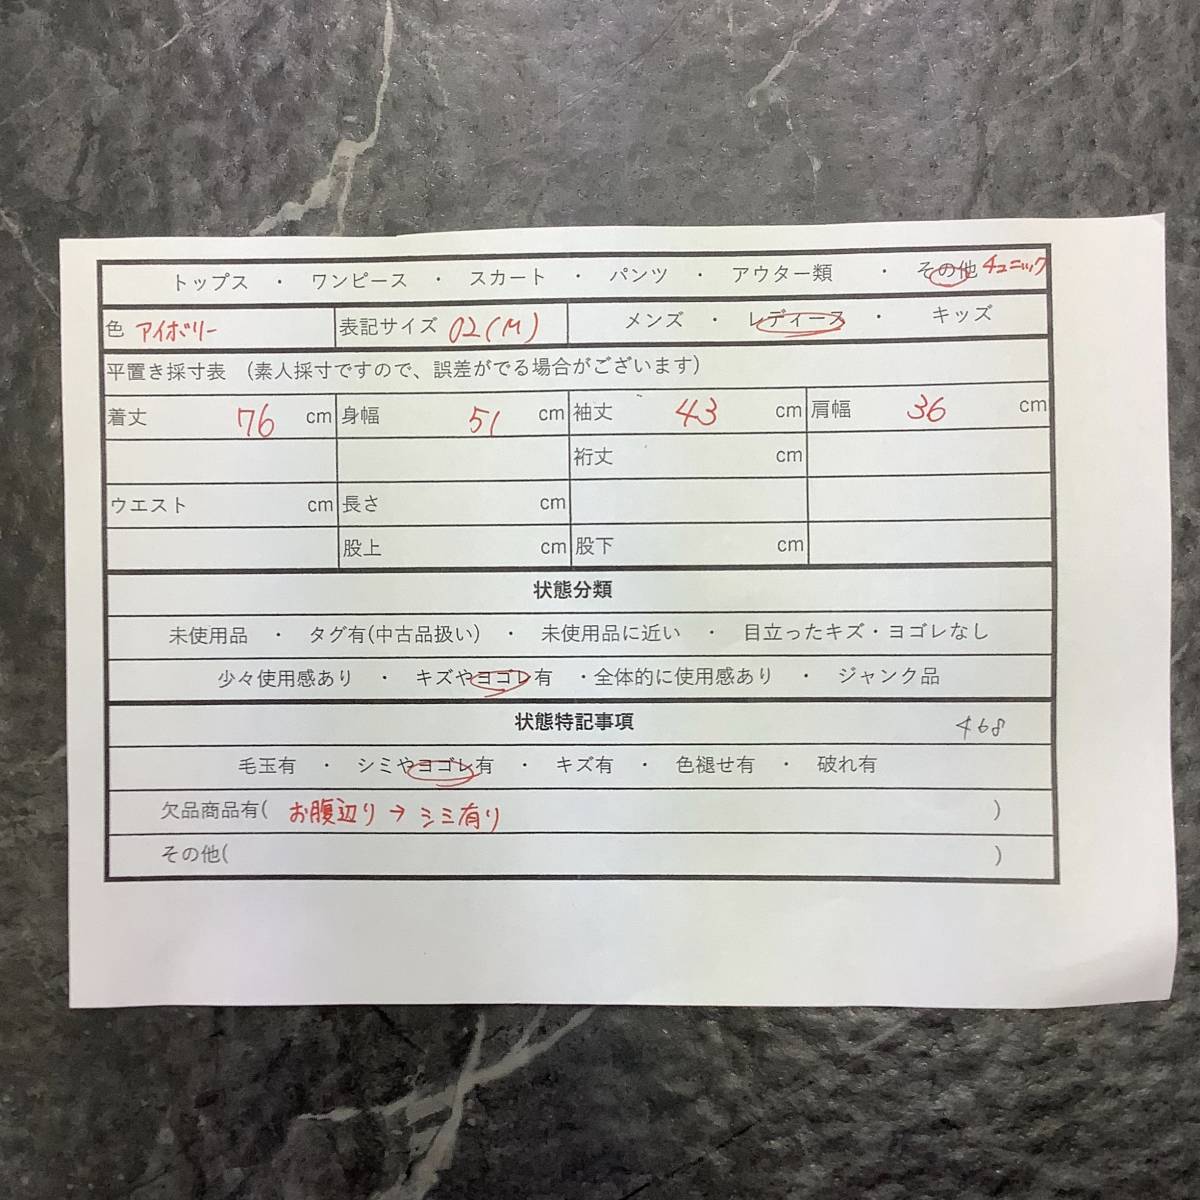 トップス ・ ワンピース ・ スカート ・ パンツ ・ アウター類 ・ その他 チュニック
色 アイボリー 表記サイズ 02(M) メンズ ・ レディース ・ キッズ
平置き採寸表 （素人採寸ですので、誤差がでる場合がございます）
着丈 76 cm 身幅 51 cm 袖丈 43 cm 肩幅 36 cm
裄丈 cm
ウエスト cm 長さ cm
股上 cm 股下 cm
状態分類
未使用品 ・ タグ有(中古品扱い) ・ 未使用品に近い ・ 目立ったキズ・ヨゴレなし
少々使用感あり ・ キズやヨゴレ有 ・全体的に使用感あり ・ ジャンク品
状態特記事項 468
毛玉有 ・ シミやヨゴレ有 ・ キズ有 ・ 色褪せ有 ・ 破れ有
欠品商品有( お腹辺り→シミ有り )
その他( )